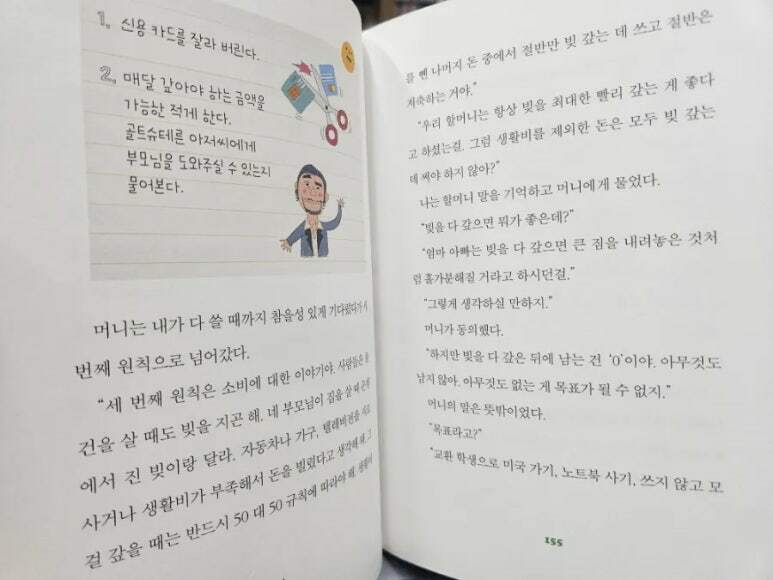 1. 신용 카드를 잘라 버린다.
2. 매달 갚아야 하는 금액을
가능한 적게 한다.
골트슈테른 아저씨에게
부모님을 도와주실 수 있는지
물어본다.
머니는 내가 다 쓸 때까지 참을성 있게 기다렸다가 세
번째 원칙으로 넘어갔다.
“세 번째 원칙은 소비에 대한 이야기야. 사람들은 물
건을 살 때도 빚을 지곤 해. 네 부모님이 집을 살 때 은행
에서 진 빚이랑 달라. 자동차나 가구, 텔레비전을 사고
사거나 생활비가 부족해서 돈을 빌렸다고 생각해 봐. 그
걸 갚을 때는 반드시 50 대 50 규칙에 따라야 해. 생활비
를 뺀 나머지 돈 중에서 절반만 빚 갚는 데 쓰고 절반은
저축하는 거야.”
“우리 할머니는 항상 빚을 최대한 빨리 갚는 게 좋다
고 하셨는걸. 그럼 생활비를 제외한 돈은 모두 빚 갚는
데 써야 하지 않아?”
나는 할머니 말을 기억하고 머니에게 물었다.
“빚을 다 갚으면 뭐가 좋은데?”
“엄마 아빠는 빚을 다 갚으면 큰 짐을 내려놓은 것처
럼 홀가분해질 거라고 하시던걸.”
“그렇게 생각하실 만하지.”
머니가 동의했다.
“하지만 빚을 다 갚은 뒤에 남는 건 ‘0’이야. 아무것도
남지 않아. 아무것도 없는 게 목표가 될 수 없지.”
머니의 말은 뜻밖이었다.
“목표라고?”
“교환 학생으로 미국 가기, 노트북 사기, 쓰지 않고 모
155